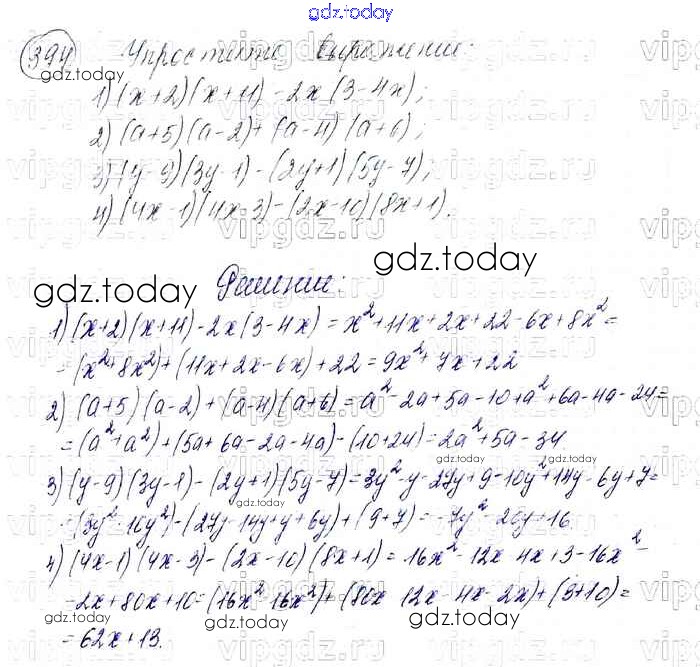 gdz.today
394 Упростите выражение:
1) (x+2)(x+11)-2x(3-4x);
2) (a+5)(a-2)+(a-4)(a+6);
3) (y-9)(3y-1)-(2y+1)(5y-7);
4) (4x-1)(4x-3)-(2x-10)(8x+1).
Решение:
1) (x+2)(x+11)-2x(3-4x)=x²+11x+2x+22-6x+8x²=
=(x²+8x²)+(11x+2x-6x)+22=9x²+7x+22
2) (a+5)(a-2)+(a-4)(a+6)=a²-2a+5a-10+a²+6a-4a-24=
=(a²+a²)+(5a+6a-2a-4a)-(10+24)=2a²+5a-34
3) (y-9)(3y-1)-(2y+1)(5y-7)=3y²-y-27y+9-10y²+14y-6y+7=
=(3y²-10y²)-(27y-14y+y+6y)+(9+7)=-7y²-20y+16
4) (4x-1)(4x-3)-(2x-10)(8x+1)=16x²-12x-4x+3-16x²-
-2x+80x+10=(16x²-16x²)+(80x-12x-4x-2x)+(3+10)=
=62x+13.